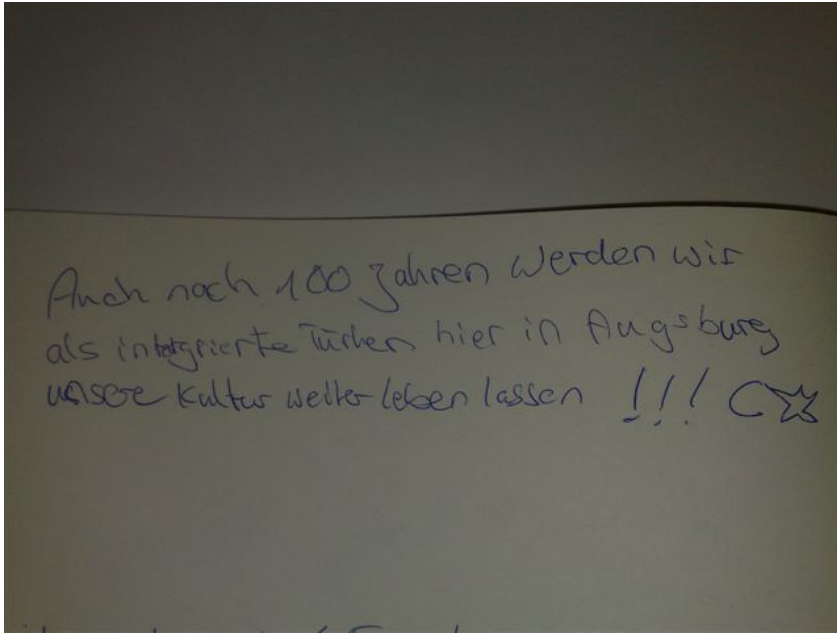 Auch nach 100 Jahren werden wir
als integrierte Türken hier in Augsburg
unsere Kultur weiter leben lassen !!! ☾☆